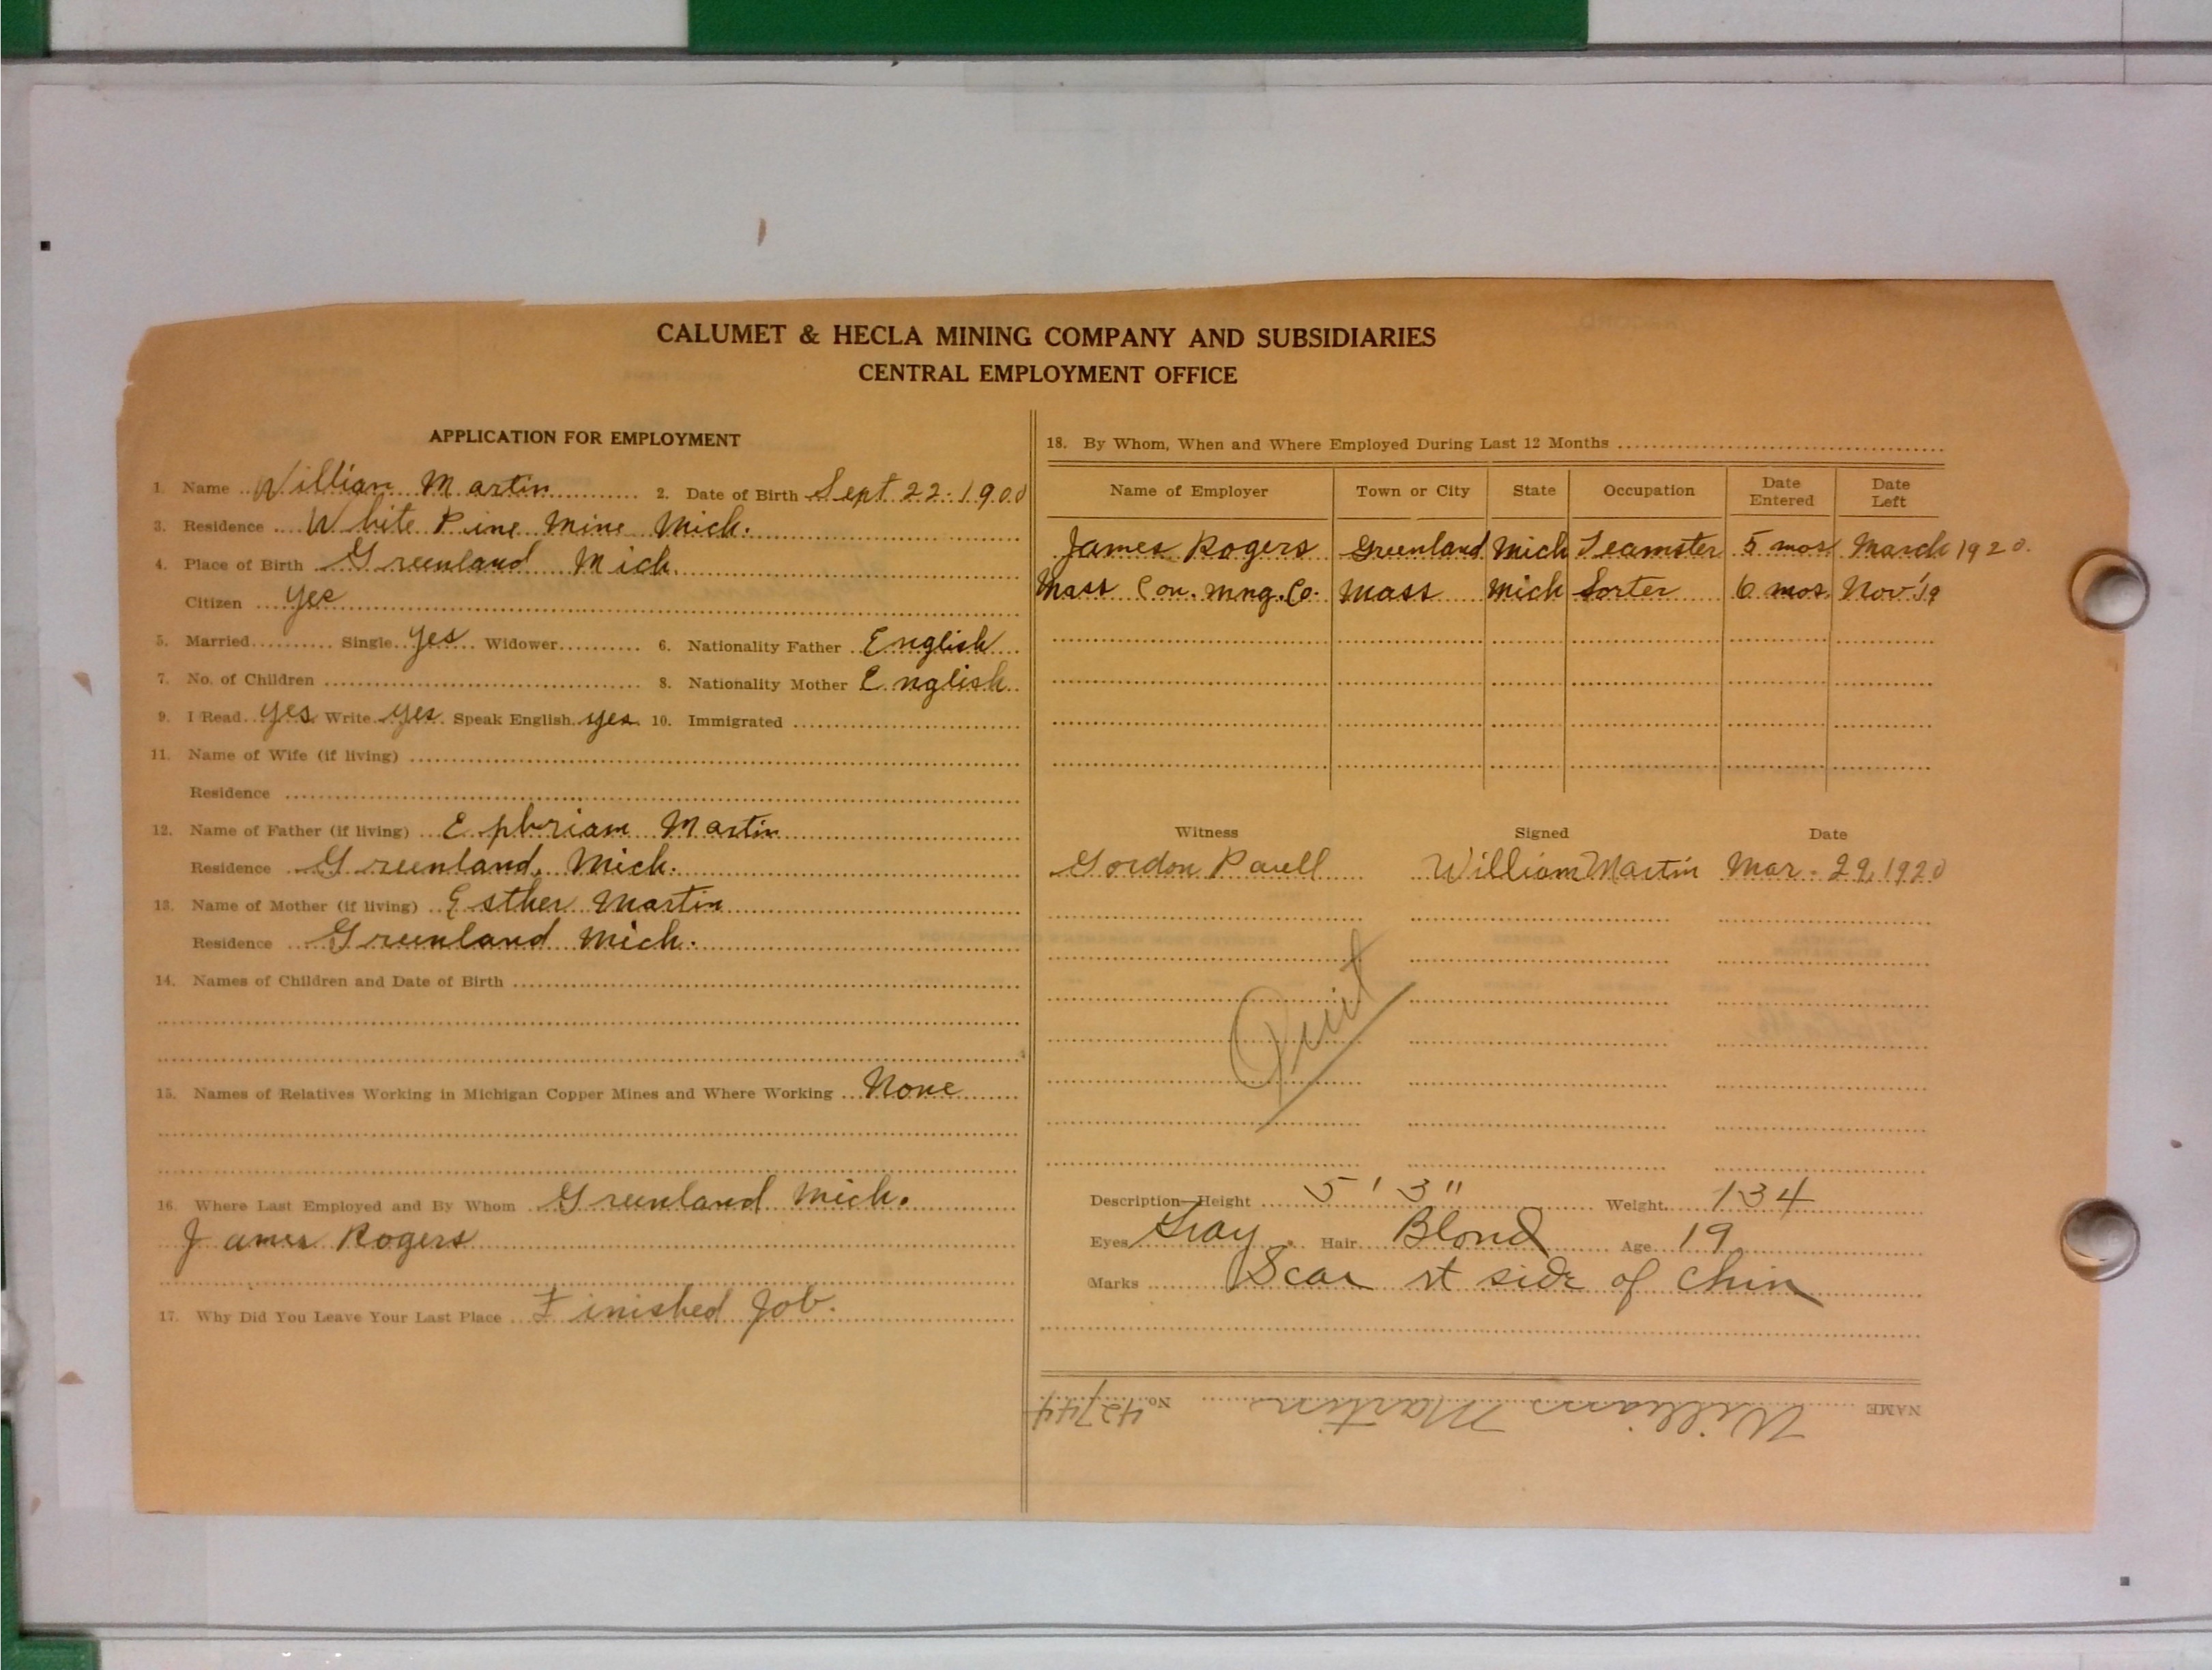 CALUMET & HECLA MINING COMPANY AND SUBSIDIARIES
CENTRAL EMPLOYMENT OFFICE
APPLICATION FOR EMPLOYMENT
1. Name William Martin 2. Date of Birth Sept 22-1900
3. Residence White Pine Mine Mich.
4. Place of Birth Greenland Mich.
Citizen yes
5. Married Single yes Widower 6. Nationality Father English
7. No. of Children 8. Nationality Mother English
9. I Read yes Write yes Speak English yes 10. Immigrated
11. Name of Wife (if living)
Residence
12. Name of Father (if living) Ephriam Martin
Residence Greenland, Mich.
13. Name of Mother (if living) Esther Martin
Residence Greenland Mich.
14. Names of Children and Date of Birth
15. Names of Relatives Working in Michigan Copper Mines and Where Working None
16. Where Last Employed and By Whom Greenland Mich.
James Rogers
17. Why Did You Leave Your Last Place Finished Job.
18. By Whom, When and Where Employed During Last 12 Months
Name of Employer Town or City State Occupation Date Entered Date Left
James Rogers Greenland Mich Teamster 5 mos. March 1920.
Mass Con. Mng. Co. Mass Mich Sorter 6 mos. Nov '19
Witness Signed Date
Gordon William Martin Mar. 29, 1920
Quit
Description—Height 5' 3" Weight 134
Eyes Gray Hair Blond Age 19
Marks Scar rt side of chin
NAME William Martin No. 42744